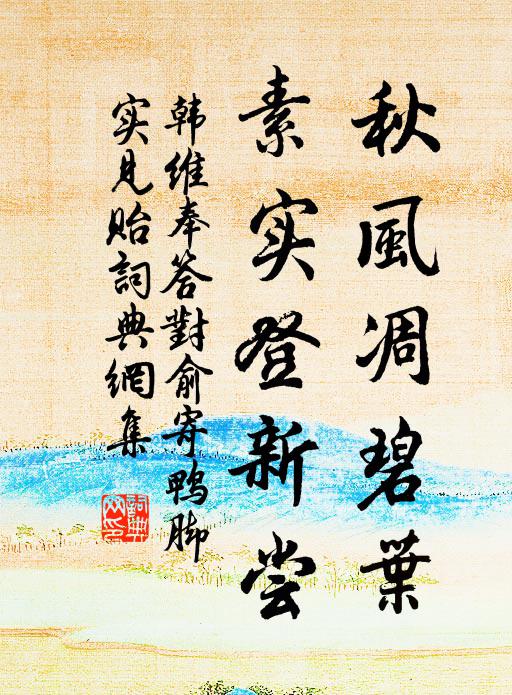 秋風凋碧葉
素实登新尝
韩维奉答對俞寄鸭脚
实見贻詞典網集
詞典